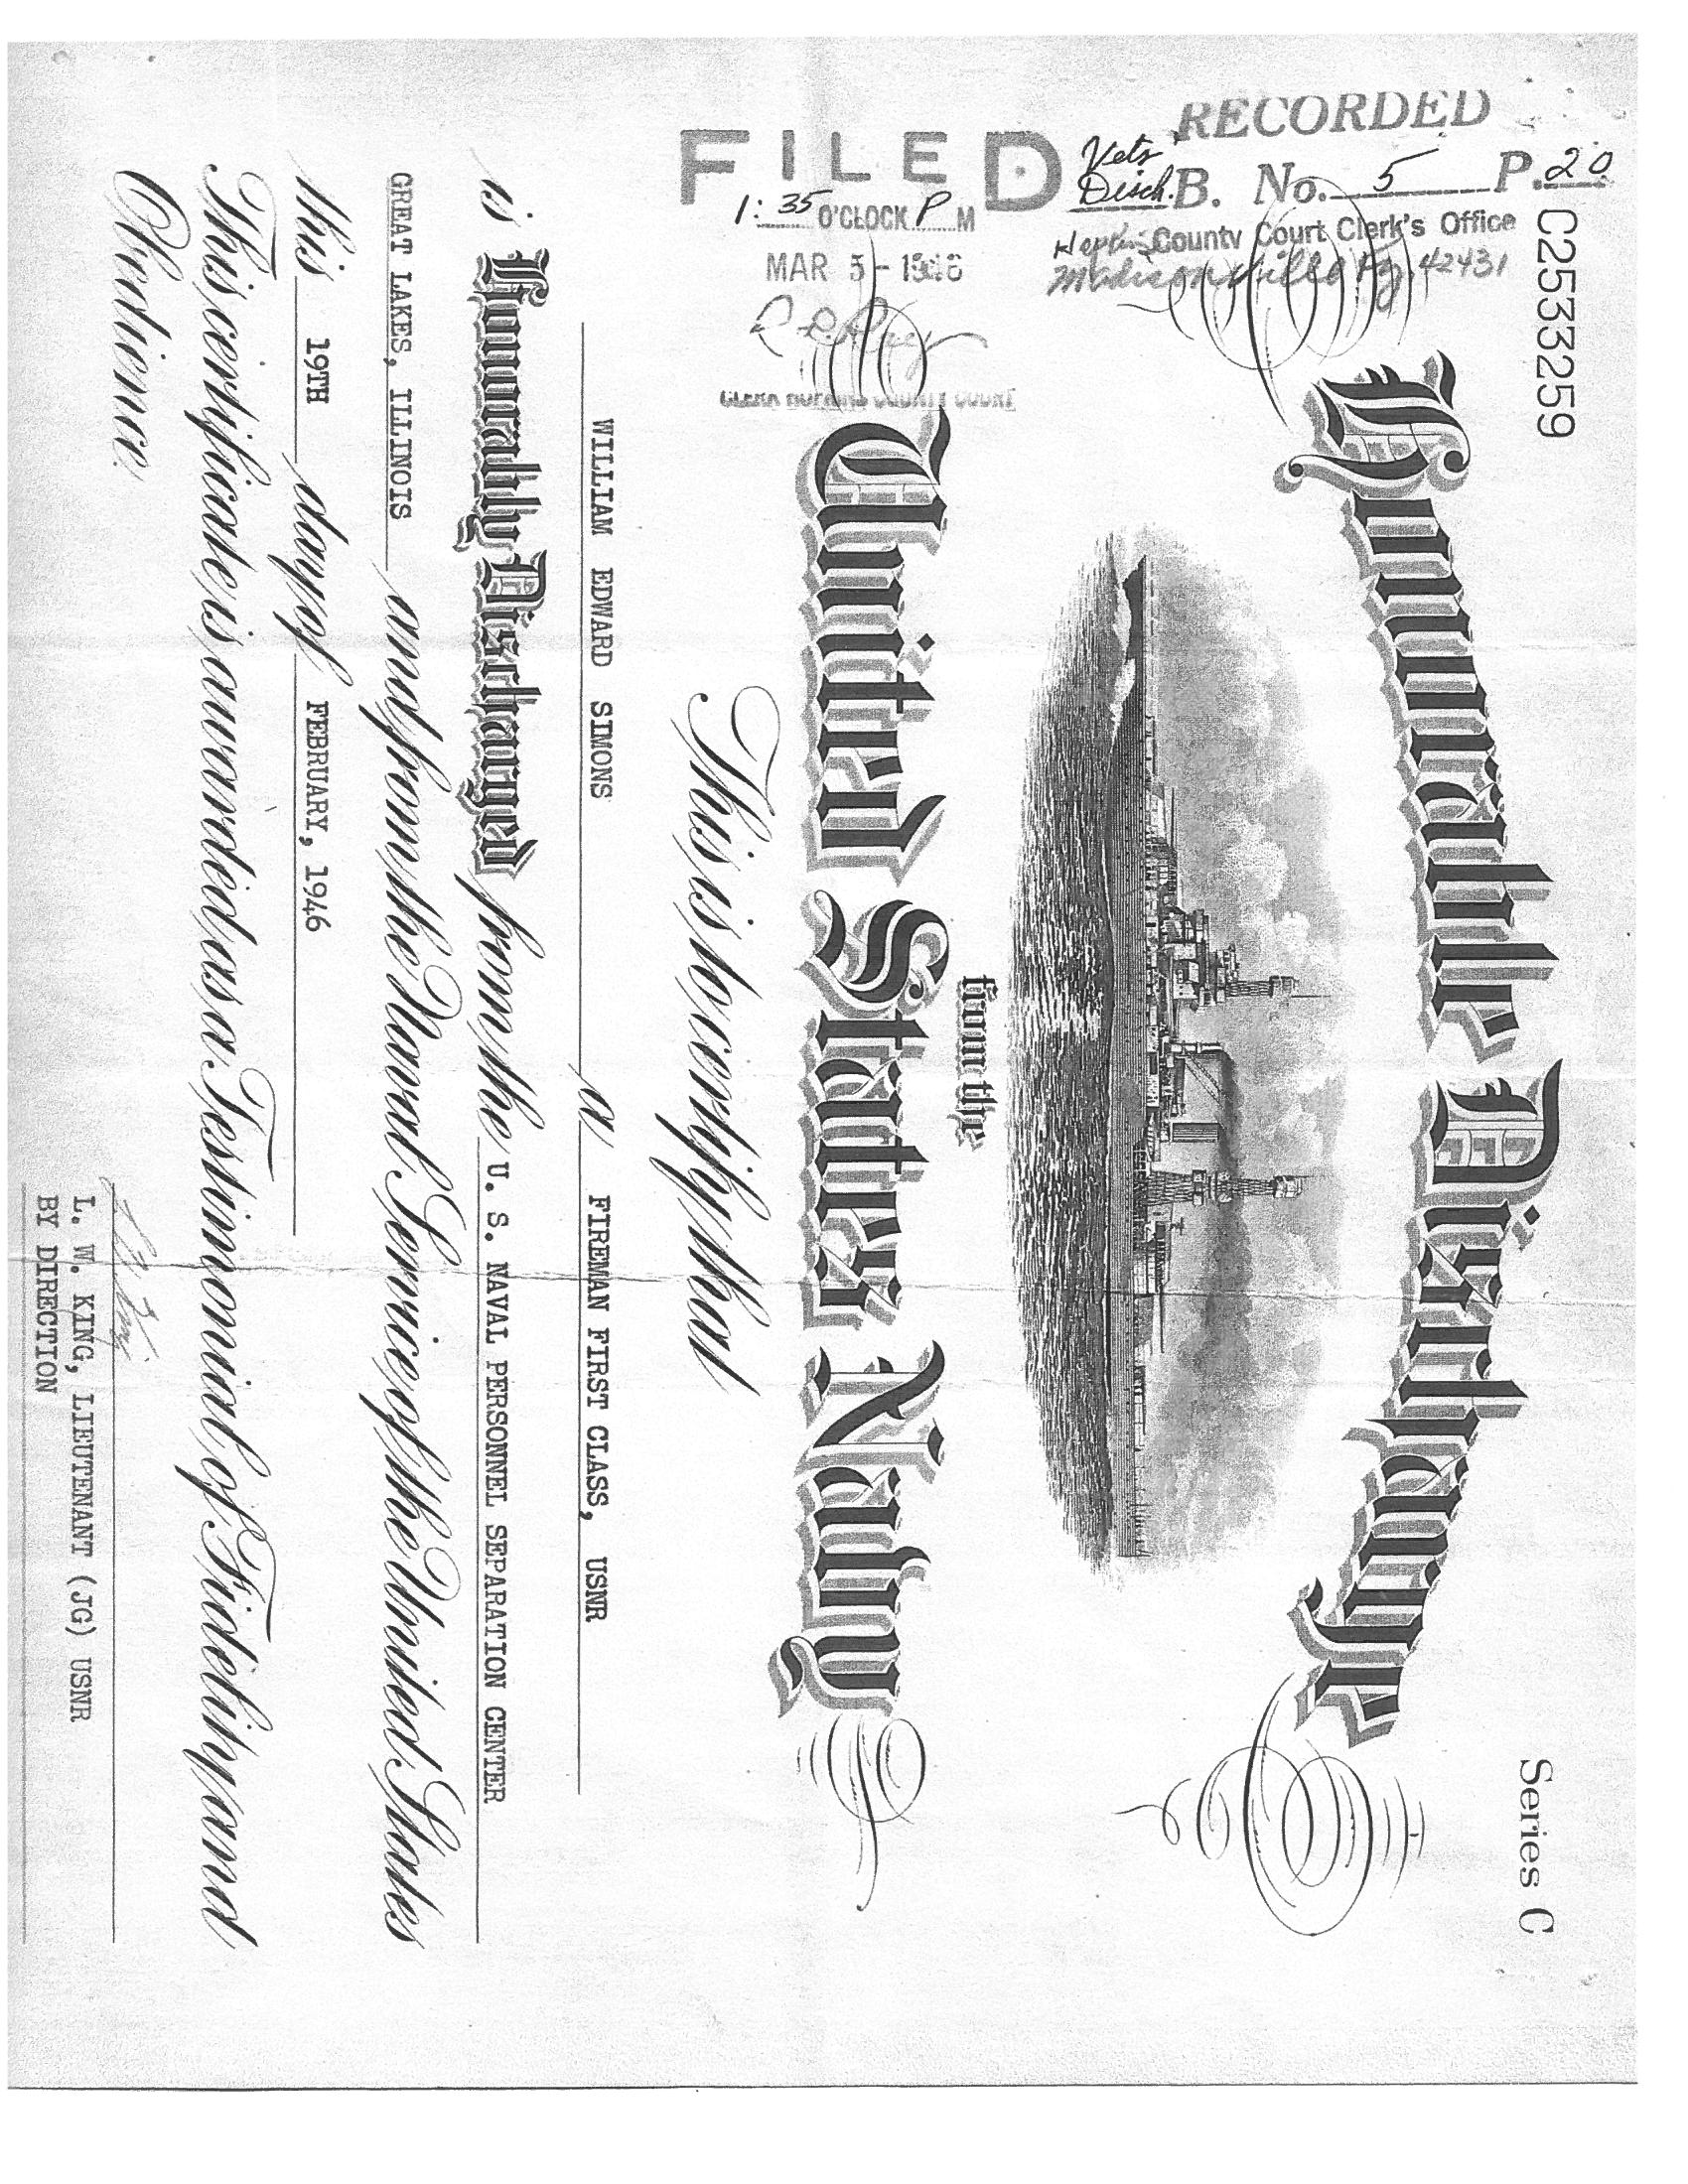 RECORDED
Vets
Disch. B. No. 5 P. 20
County Court Clerk's Office
Madisonville Ky. 42431
FILED
1:35 O'CLOCK P M
MAR 5 - 1946
CLERK HOPKINS COUNTY COURT
C2533259
Series C
Honorable Discharge
from the
United States Navy
This is to certify that
WILLIAM EDWARD SIMONS a FIREMAN FIRST CLASS, USNR
is Honorably Discharged from the U. S. NAVAL PERSONNEL SEPARATION CENTER
GREAT LAKES, ILLINOIS and from the Naval Service of the United States
this 19TH day of FEBRUARY, 1946
This certificate is awarded as a Testimonial of Fidelity and
Obedience.
L. W. KING, LIEUTENANT (JG) USNR
BY DIRECTION